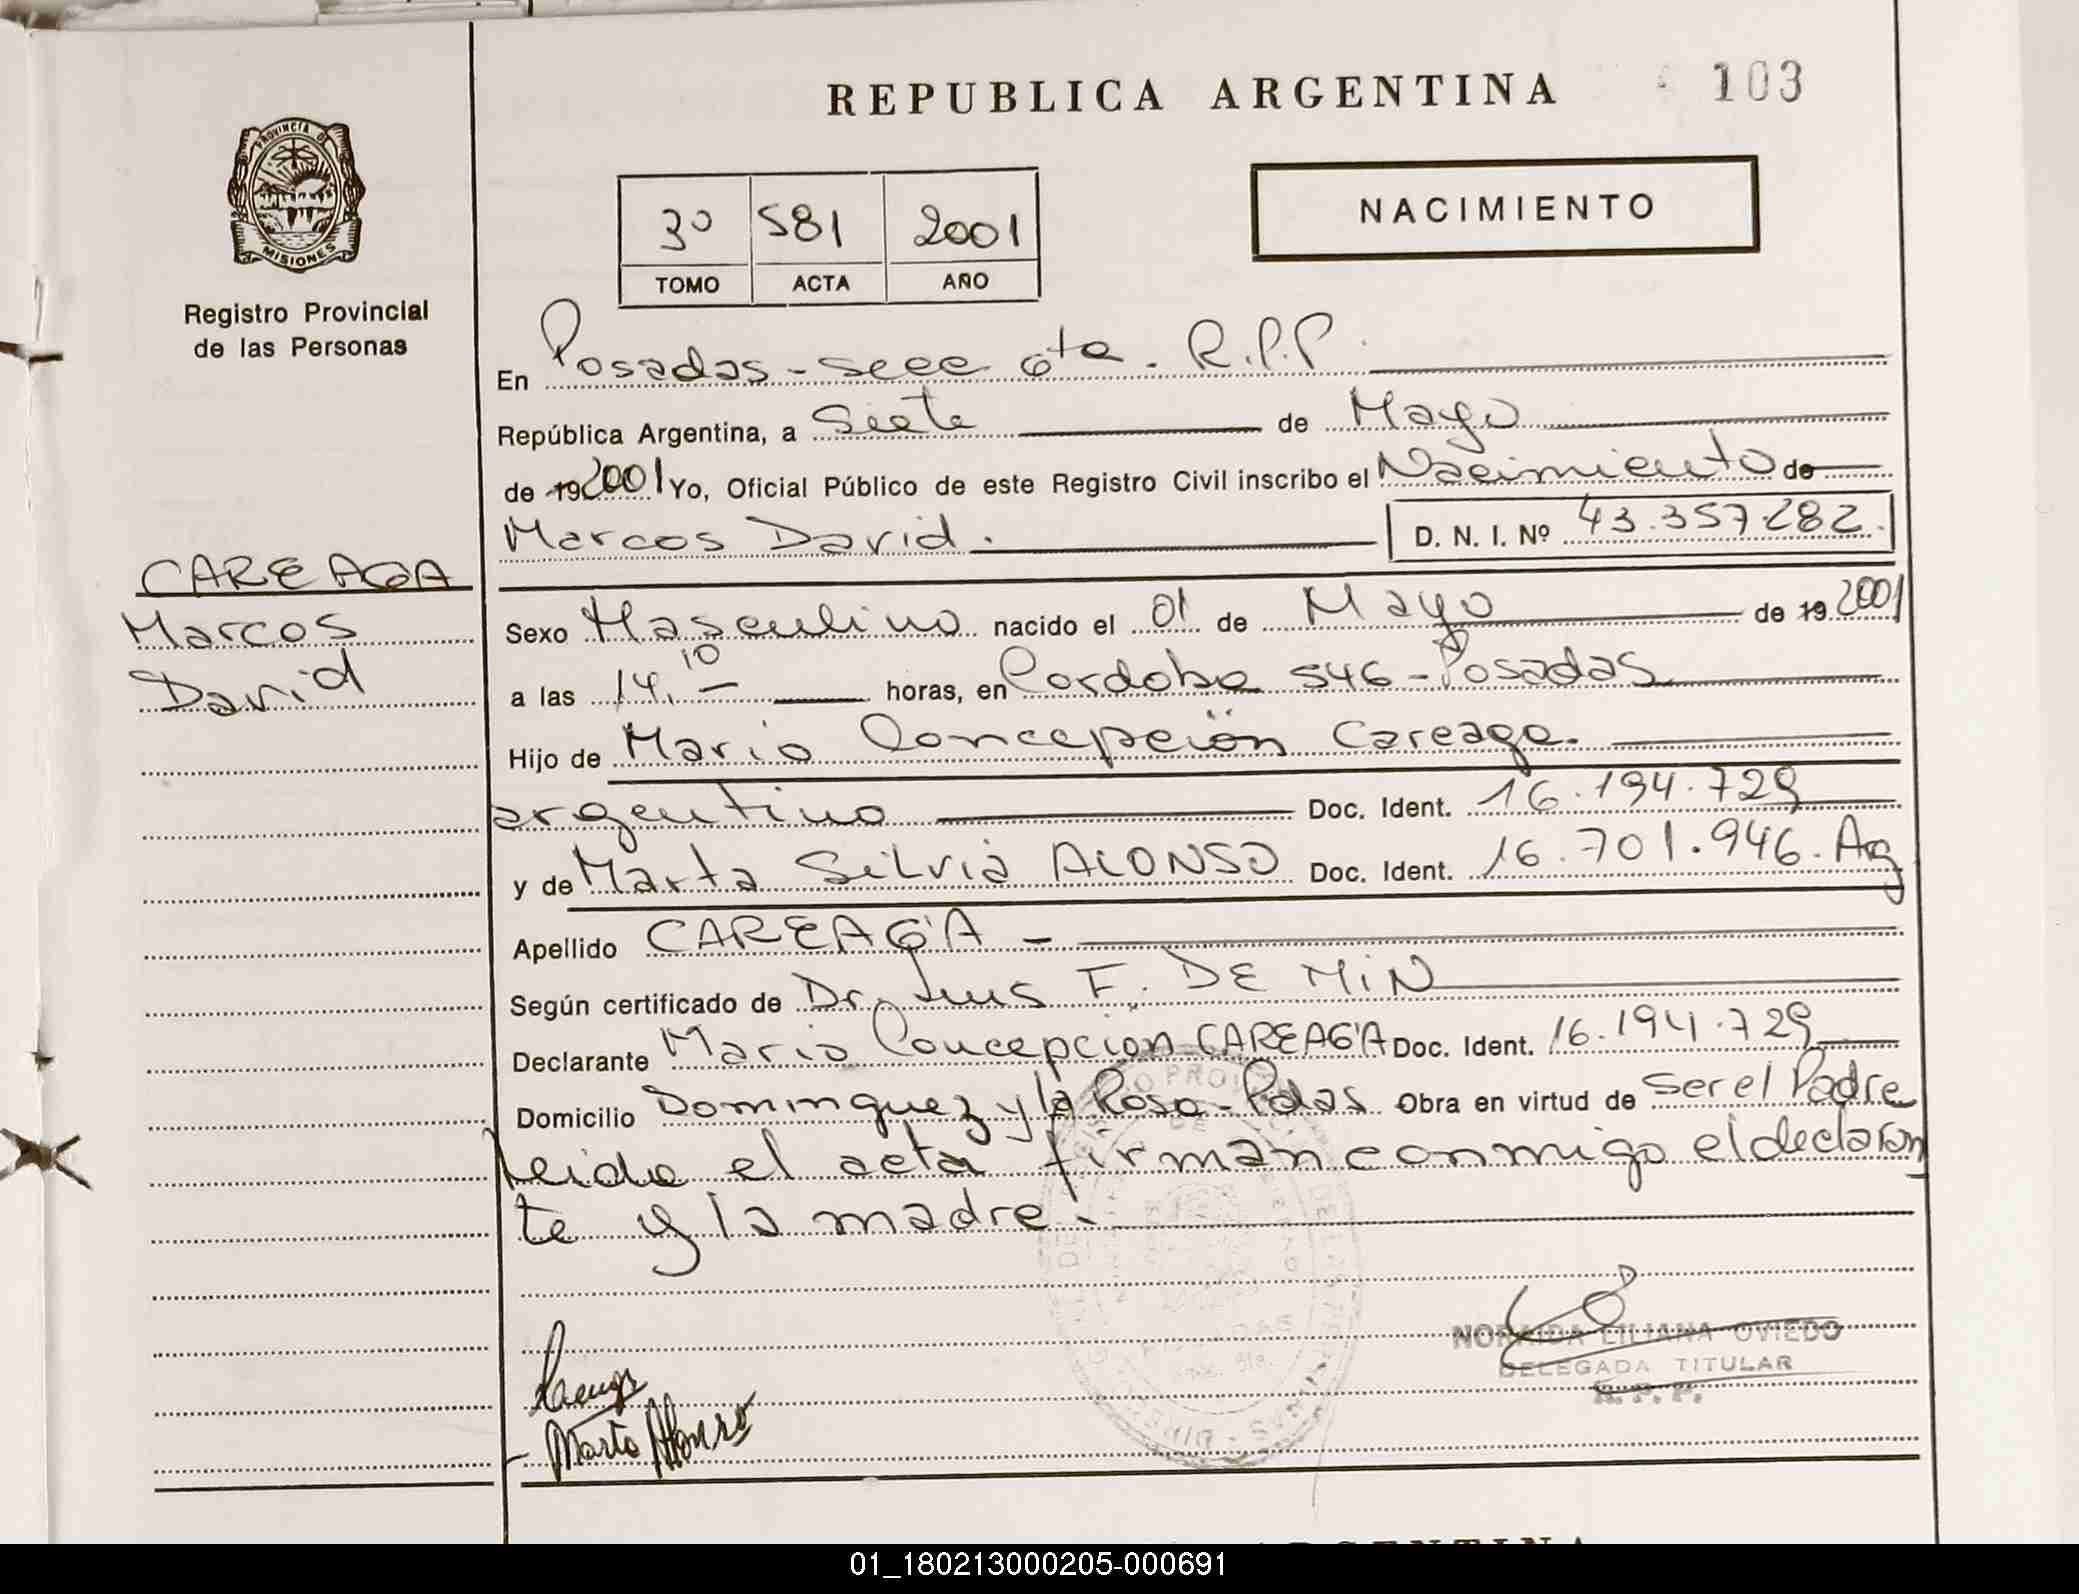 REPUBLICA ARGENTINA
103
PROVINCIA DE
MISIONES
Registro Provincial
de las Personas
3º 581 2001
TOMO ACTA AÑO
NACIMIENTO
En Posadas - secc 6ta. R.P.P.
República Argentina, a Siete de Mayo
de 19 2001 Yo, Oficial Público de este Registro Civil inscribo el Nacimiento de
Marcos David. D. N. I. Nº 43.357.282.
CAREAGA
Marcos
David
Sexo Masculino nacido el 01 de Mayo de 19 2001
a las 14,10 horas, en Cordoba 546 - Posadas
Hijo de Mario Concepción Careaga.
argentino Doc. Ident. 16.194.729
y de Marta Silvia ALONSO Doc. Ident. 16.701.946. Arg
Apellido CAREAGA -
Según certificado de Dr. Luis F. DE MIN
Declarante Mario Concepcion CAREAGA Doc. Ident. 16.194.729
Domicilio Dominguez y la Rosa - Pdas Obra en virtud de Ser el Padre
Leida el acta firman conmigo el declaran
te y la madre.
NORAIDA LILIANA OVIEDO
DELEGADA TITULAR
R. P. P.
Marta Alonso
ARGENTINA
01_180213000205-000691